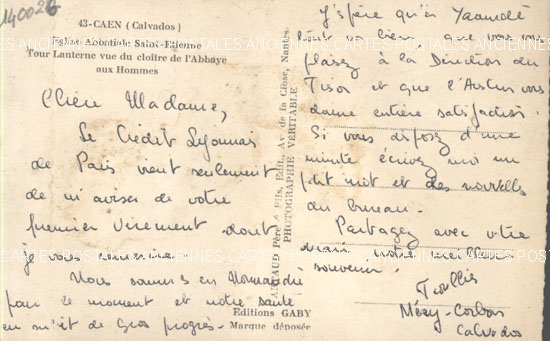 140026
43-CAEN (Calvados)
Eglise Abbatiale Saint-Etienne
Tour Lanterne vue du cloître de l'Abbaye
aux Hommes
CARTES POSTALES ANCIENNES
Chère Madame,
Le Crédit Lyonnais
de Paris vient seulement
de m'aviser de votre
premier virement dont
je vous remercie.
Nous sommes en Normandie
pour le moment et notre santé
en fait de gros progrès.
Père & Fils, Edit., Av. de la Close, Nantes.
PHOTOGRAPHIE VÉRITABLE
Editions GABY
Marque déposée
J'espère qu'à Yaoundé
tout va bien que vous vous
plaisez à la Direction du
et que l'
donne entière satisfaction.
Si vous disposez d'une
minute écrivez moi un
petit mot et des nouvelles
du bureau.
Partagez avec votre
mari notre meilleur
souvenir.
Mézy-Corbon
Calvados